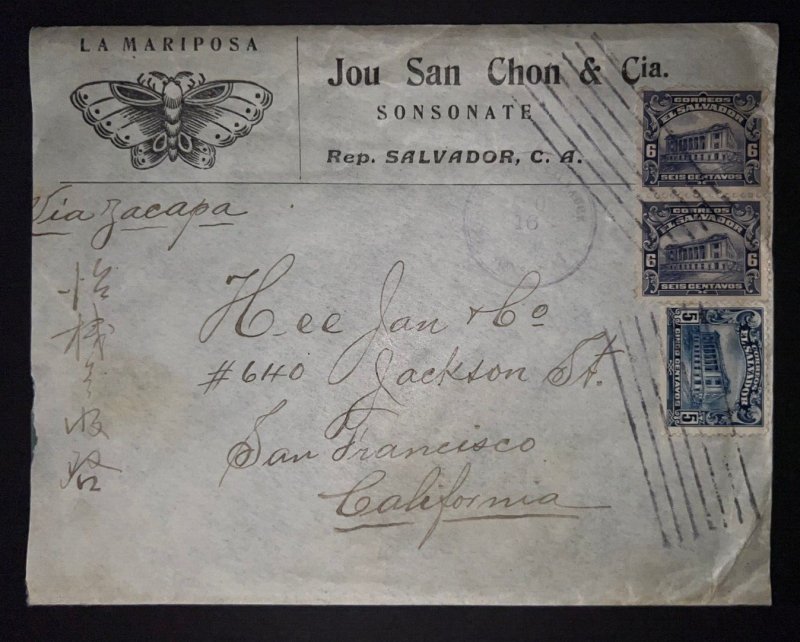 LA MARIPOSA
Jou San Chon & Cia.
SONSONATE
Rep. SALVADOR, C. A.
Via Zacapa
Hee Jan & Co
#640 Jackson St.
San Francisco
California
怡棧
收啓
CORREOS
EL SALVADOR
6 6
SEIS CENTAVOS
CORREOS
EL SALVADOR
6 6
SEIS CENTAVOS
CORREOS
EL SALVADOR
5 5
CINCO CENTAVOS
16